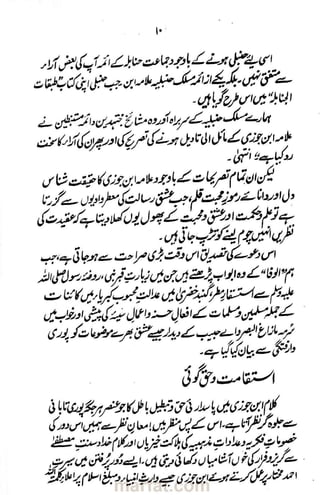 ۱۰
اسی لیے حنبلی ہونے کے باوجود جماعت حنابلہ کے ائمہ آپ کی بعض آراء
سے متفق نہیں۔ بلکہ یکے از ائمہ مسلک حنبلیہ علامہ ابن رجب حنبلی اپنی کتاب "طبقات
الحنابلہ" میں اس طرح گویا ہیں۔
ہمارے مسلک حنبلیہ کے سربراہ آوردہ مشائخ مجتہدین و ائمہ مستنبطین نے
علامہ ابن جوزی کے مائل الی التاویل ہونے کی تصریح کی اور پھر ان کی آراء کا سخت
رد کیا ہے" انتہٰی۔
لیکن ان تمام تصریحات کے باوجود علامہ ابن جوزی کا حقیقت شناس
دل اور دانائے رموزِ محبت قلم، جب عشقِ رسالت کی معطر وادیوں سے گزرتا
ہے تو علم و حکمت اور عشق و محبت کے پھول یوں کھلا دیتا ہے کہ عقیدت کی
نظریں انہیں چوم لینے کو تڑپ جاتی ہیں۔
اس دعوے کی تصدیق اس وقت بڑی صراحت سے ہو جاتی ہے، جب
ہم "الوفا" کے وہ ابواب پڑھتے ہیں جن میں زیارتِ قبر نبی، روضۂ رسول صلی اللہ
علیہ وسلم سے استسقاء گنبدِ خضریٰ میں عدالتِ محبوب کبریا میں کائنات
کے جملہ مسلمین و مسلمات کے افعالِ حسنہ و اعمالِ سیئہ کی پیشی اور خواب میں
سرمہ مازاغ البصر والے حبیب کے دیدار جیسے عشق بھرے موضوعات کو پوری
وارفتگی سے بیان کیا گیا ہے۔
استقامت و حق گوئی
کلام ابن جوزی میں پاسداری حق و تبطیل باطل کا جو عنصر ہر جگہ پوری تابانی
سے جلوہ گر نظر آتا ہے۔ اس کے پس منظر میں اہلِ نظر سے ہمیں اس دور کی
خصوماتِ فکریہ و عداواتِ مذہبیہ کی ہلاکت خیزیاں اور کلام خدا و سنتِ مصطفیٰ
سے گریز و فرار کی خوں آشامیاں دکھائی دیتی ہیں۔ ایسے دورِ پُر فتن میں سیرتِ
احمد مختار پر عمل کرتے ہوئے ابن جوزی جیسے وارثِ انبیاء و مبلغِ اسلام پر اعلاء کلمۃ
marfat.com